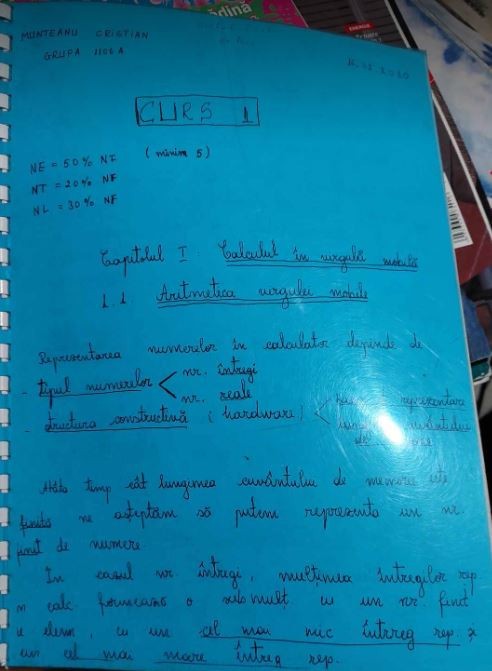 MUNTEANU CRISTIAN
GRUPA 1106 A
CURS 1
NE = 50% NF (minim 5)
NT = 20% NF
NL = 30% NF
Capitolul I. Calculul în virgulă mobilă
1.1 Aritmetica virgulei mobile
Reprezentarea numerelor în calculator depinde de
- tipul numerelor < nr. întregi
nr. reale
- structura constructivă (hardware) < reprezentare
lungimea cuvântului
de
Atâta timp cât lungimea cuvântului de memorie este
finită ne așteptăm să putem reprezenta un nr.
finit de numere.
În cazul nr. întregi, mulțimea întregilor rep.
n calc. formează o submulț. cu un nr. finit
e elem, cu un cel mai mic întreg rep. și
un cel mai mare întreg rep.